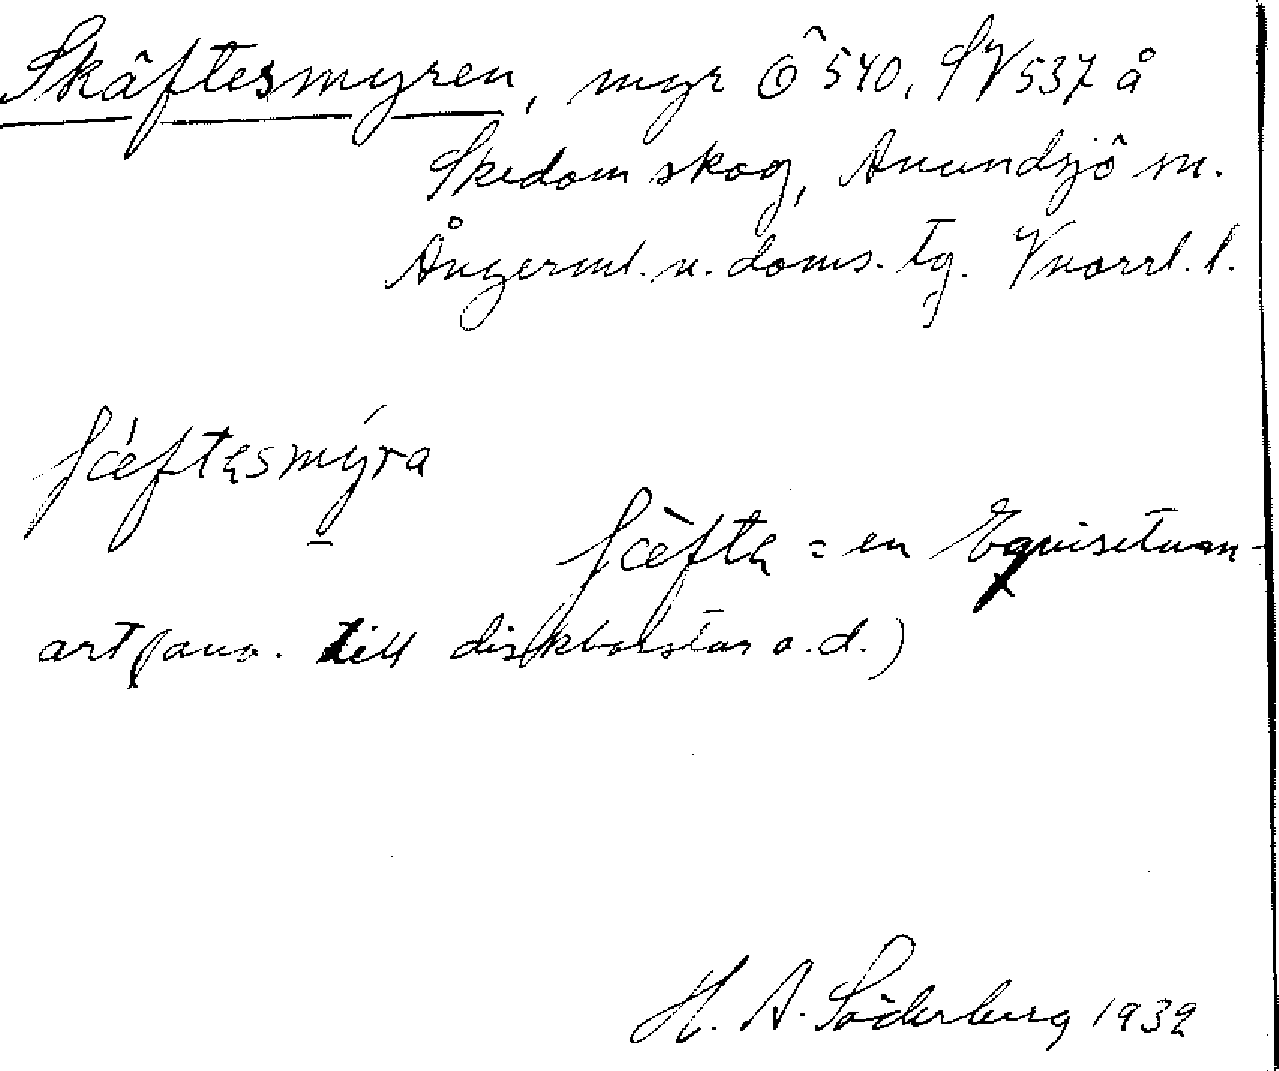 Skäftesmyren, myr Ö 540, SV 537 å
Skedom skog, Anundsjö sn.
Ångerml. n. doms. tg. Vnorrl. l.
ʃæ̀ftəsmýra
ʃæ̀ftə = en Equisetum-
art (anv. till diskborstar o.d.)
H. A. Söderberg 1932